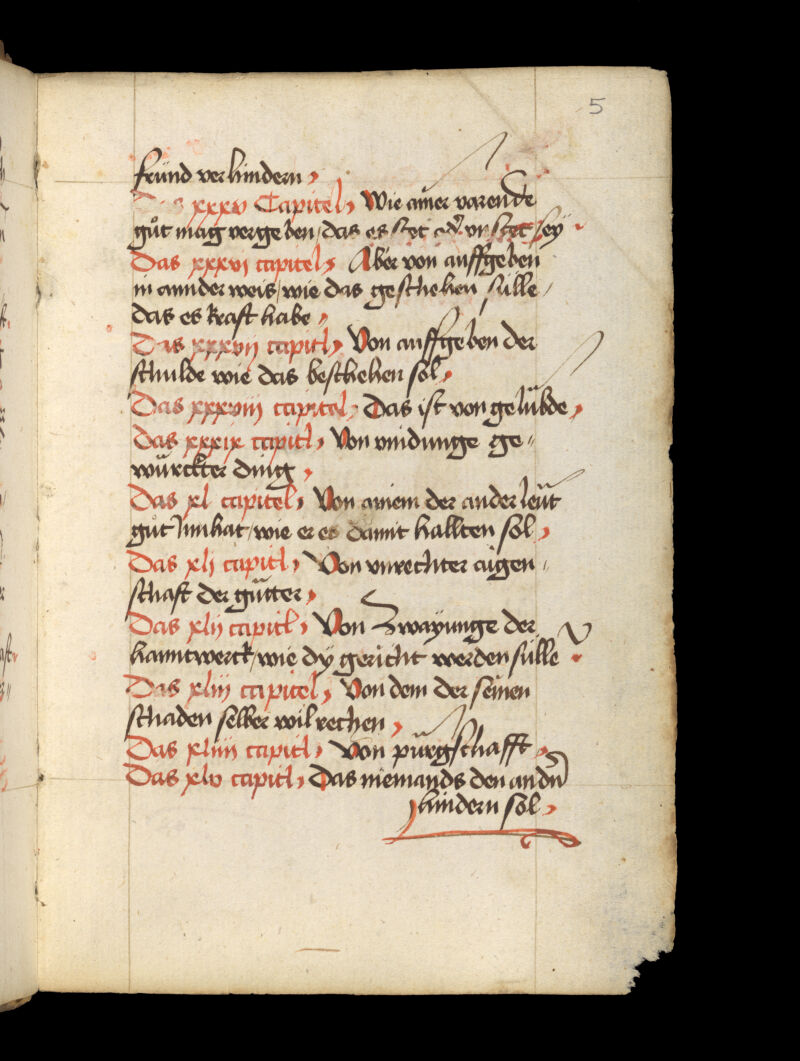 5
frund verhindern
Das xxxv Capitel Wie ainer varende
gůt mag vergeben / das es stet od' vnstet sey
Das xxxvi capitel Aber von auffgeben
in annder weis / wie das geschehen sulle /
das es kraft habe
Das xxxvii capitl Von auffgeben der
schulde wie das beschehen sol
Das xxxviii capitel Das ist von gelübde
Das xxxix capitl Von vindunge ge=
würckter ding
Das xl capitel Von ainem der ander leüt
gůt Innhat / wie er es damit hallten sol
Das xli capitl Von vnrechter aigen=
schaft der gütter
Das xlii capitl Von Zwayunge der
hanntwerck / wie dÿ gericht werden sülle
Das xliii capitel Von dem der seinen
schaden selber wil rechen
Das xliiii capitl Von pürgschafft
Das xlv capitl Das niemands den andn̄
hindern sol